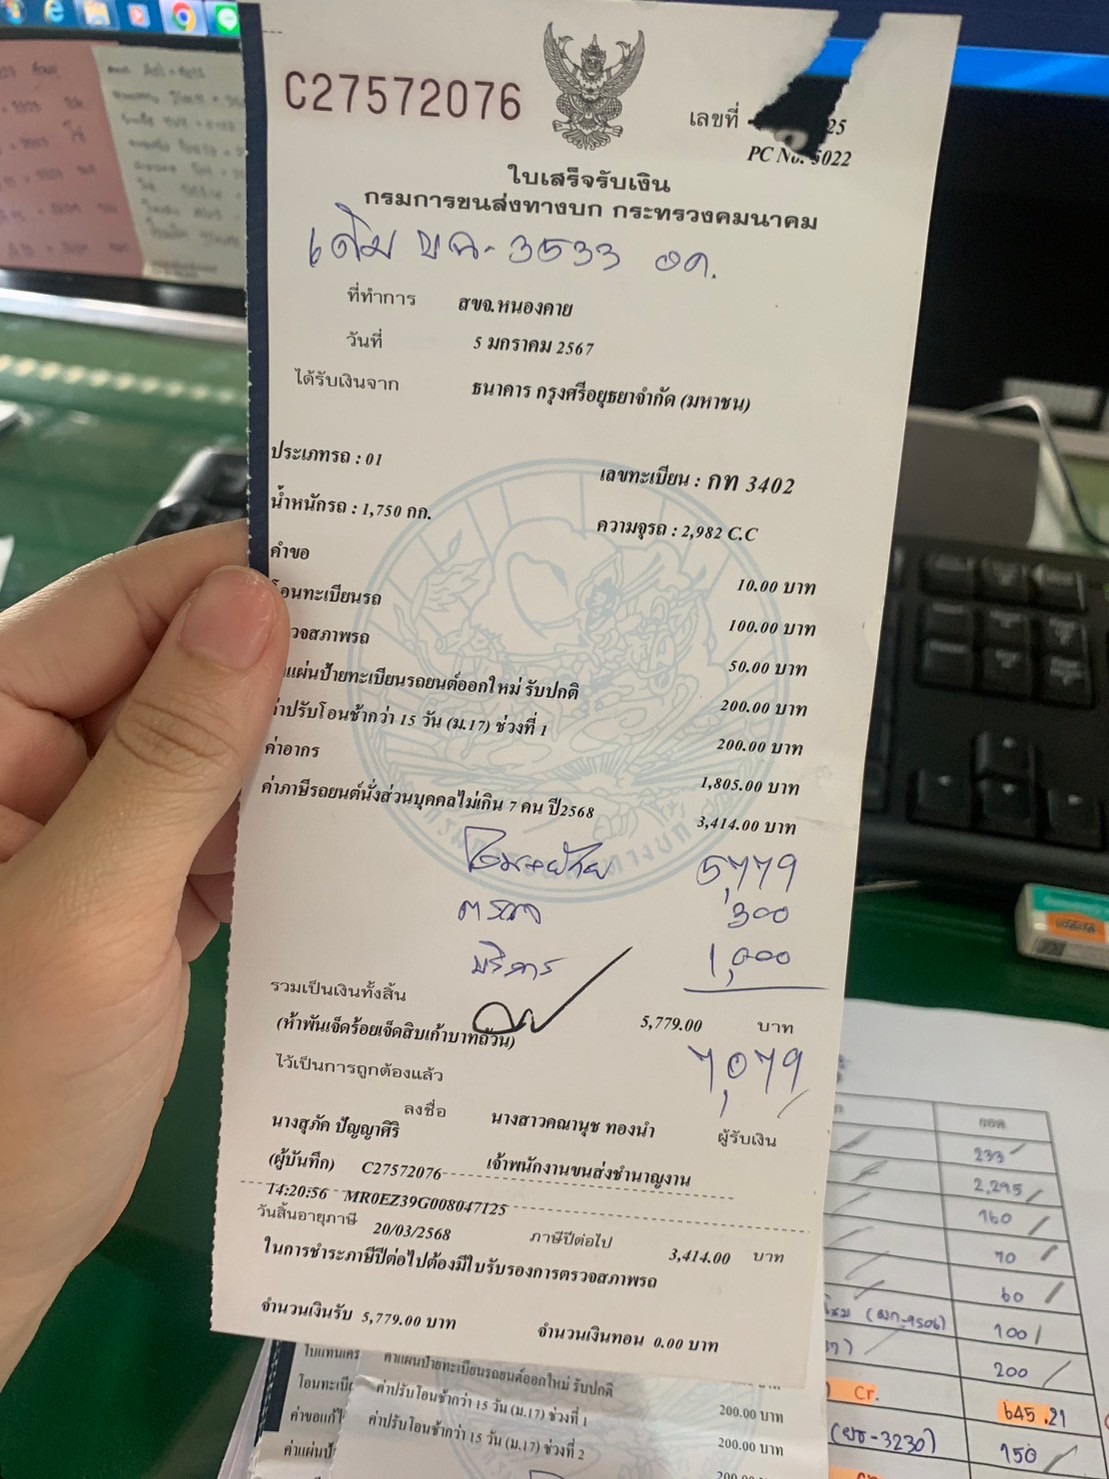 C27572076
เลขที่ 25
PC No. 5022
ใบเสร็จรับเงิน
กรมการขนส่งทางบก กระทรวงคมนาคม
เดิม ขฉ-3533 อด.
ที่ทำการ สขจ.หนองคาย
วันที่ 5 มกราคม 2567
ได้รับเงินจาก ธนาคาร กรุงศรีอยุธยาจำกัด (มหาชน)
ประเภทรถ : 01 เลขทะเบียน : กท 3402
น้ำหนักรถ : 1,750 กก. ความจุรถ : 2,982 C.C
คำขอ 10.00 บาท
โอนทะเบียนรถ 100.00 บาท
วจสภาพรถ 50.00 บาท
แผ่นป้ายทะเบียนรถยนต์ออกใหม่ รับปกติ 200.00 บาท
ค่าปรับโอนช้ากว่า 15 วัน (ม.17) ช่วงที่ 1 200.00 บาท
ค่าอากร 1,805.00 บาท
ค่าภาษีรถยนต์นั่งส่วนบุคคลไม่เกิน 7 คน ปี2568 3,414.00 บาท
5,779
ตรวจ 300
บริการ 1,000
รวมเป็นเงินทั้งสิ้น 5,779.00 บาท
(ห้าพันเจ็ดร้อยเจ็ดสิบเก้าบาทถ้วน)
7,079
ไว้เป็นการถูกต้องแล้ว
ลงชื่อ นางสาวคณานุช ทองนำ ผู้รับเงิน
นางสุภัค ปัญญาศิริ
(ผู้บันทึก) C27572076 เจ้าพนักงานขนส่งชำนาญงาน
14:20:56 MR0EZ39G008047125
วันสิ้นอายุภาษี 20/03/2568 ภาษีปีต่อไป 3,414.00 บาท
ในการชำระภาษีปีต่อไปต้องมีใบรับรองการตรวจสภาพรถ
จำนวนเงินรับ 5,779.00 บาท จำนวนเงินทอน 0.00 บาท
ใบแทนเคร
โอนทะเบี
ค่าขอแก้ไ
ค่าแผ่นป้
ค่าแผ่นป้ายทะเบียนรถยนต์ออกใหม่ รับปกติ
ค่าปรับโอนช้ากว่า 15 วัน (ม.17) ช่วงที่ 1 200.00 บาท
ค่าปรับโอนช้ากว่า 15 วัน (ม.17) ช่วงที่ 2 200.00 บาท
200.00 บาท
ยอด
233
2,295
160
70
60
(ผก-9506) 100
200
Cr. 645.21
(ยธ-3230) 150